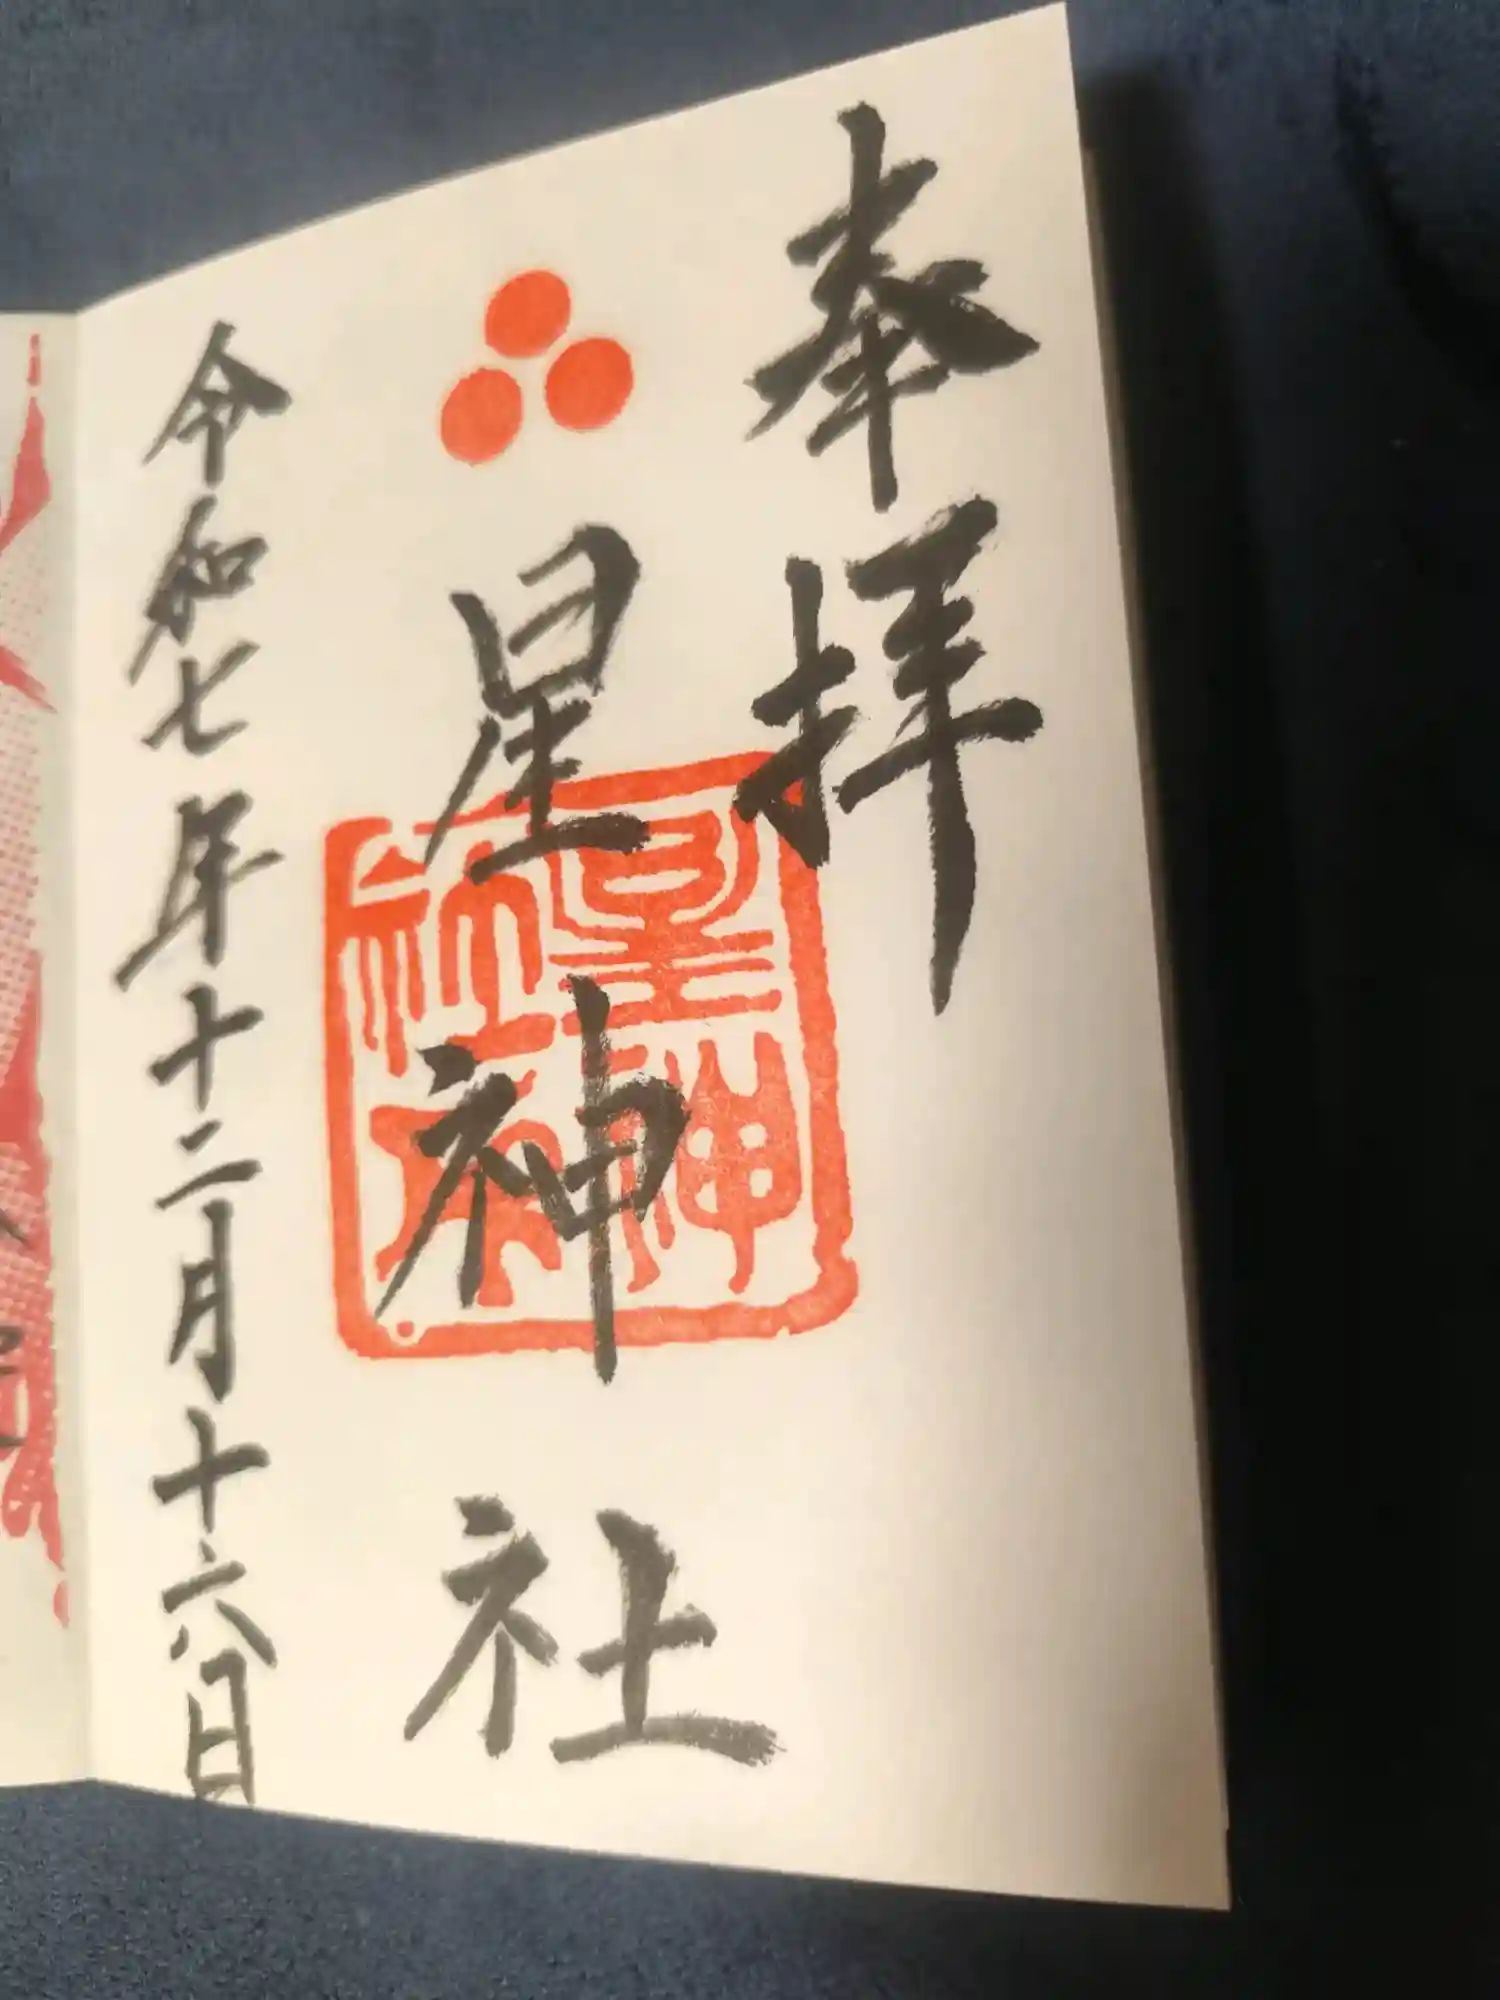 奉拝
星神社
星神社印
令和七年十二月十六日